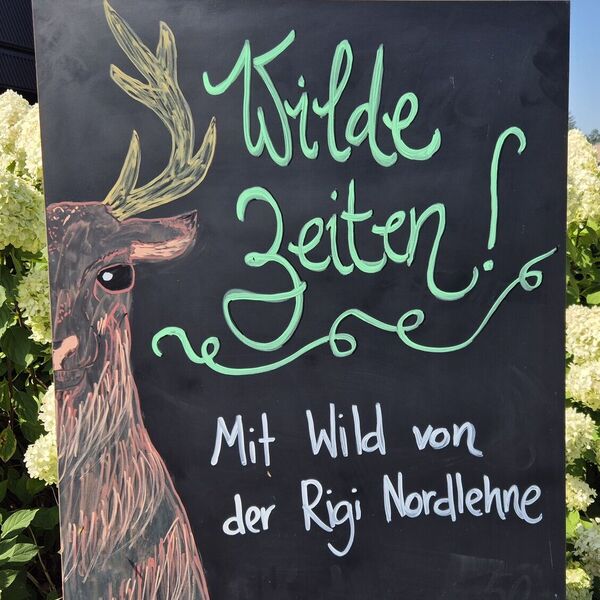 Wilde
Zeiten!
Mit Wild von
der Rigi Nordlehne